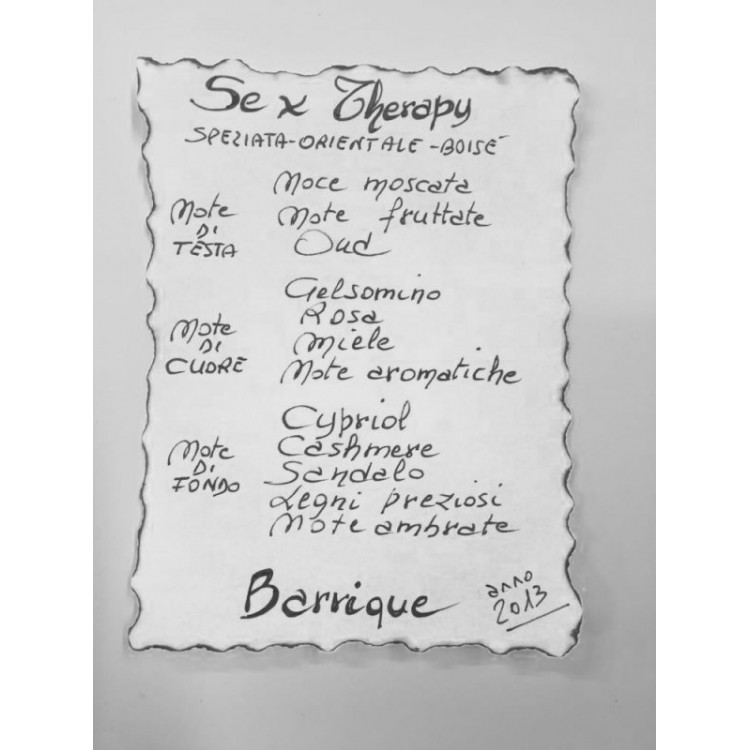 Sex Therapy
SPEZIATA-ORIENTALE-BOISÉ
Note
DI
TESTA
Noce moscata
Note fruttate
Oud
Note
DI
CUORE
Gelsomino
Rosa
Miele
Note aromatiche
Note
DI
FONDO
Cypriol
Cashmere
Sandalo
Legni preziosi
Note ambrate
Barrique
anno
2013